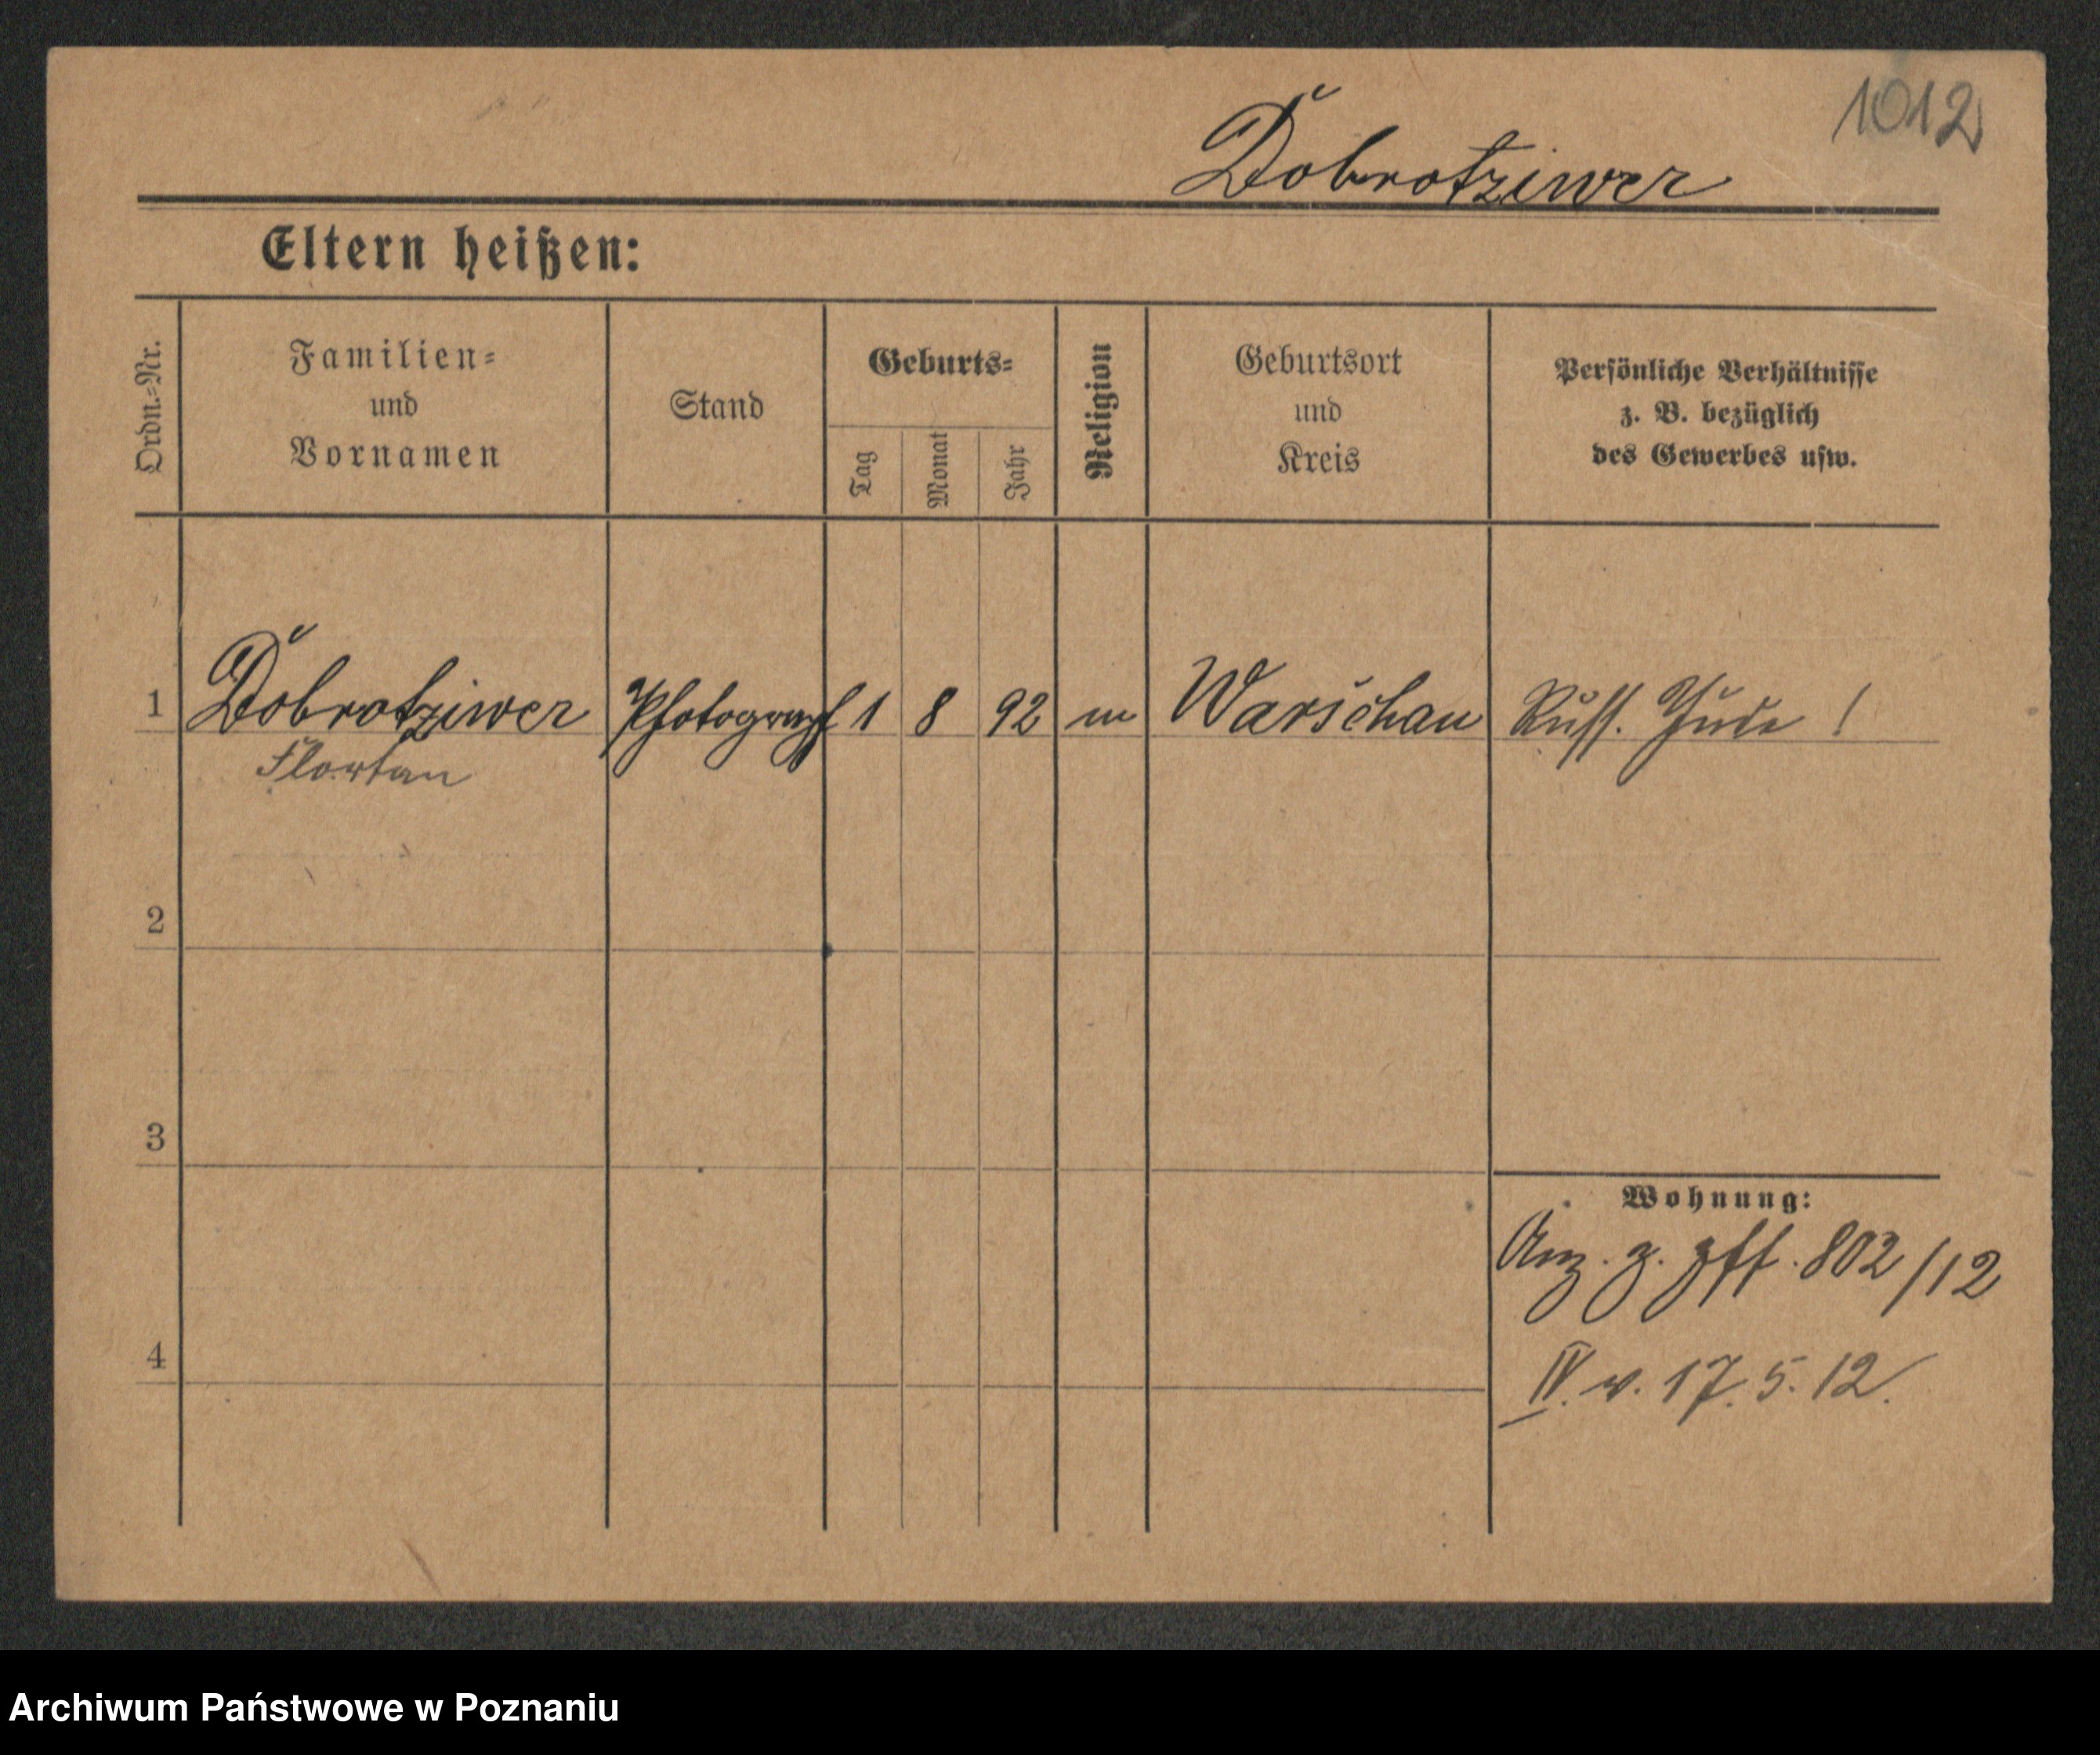 1012
Dobrotziwer
Eltern heißen:
Ordn.-Nr.
Familien-
und
Vornamen
Stand
Geburts-
Tag
Monat
Jahr
Religion
Geburtsort
und
Kreis
Persönliche Verhältnisse
z. B. bezüglich
des Gewerbes usw.
1 Dobrotziwer Photograph 1 8 92 m Warschau Russ. Jude !
Florian
2
3
Wohnung:
Anz. z. 802/12
4
IV. v. 17.5.12.
Archiwum Państwowe w Poznaniu